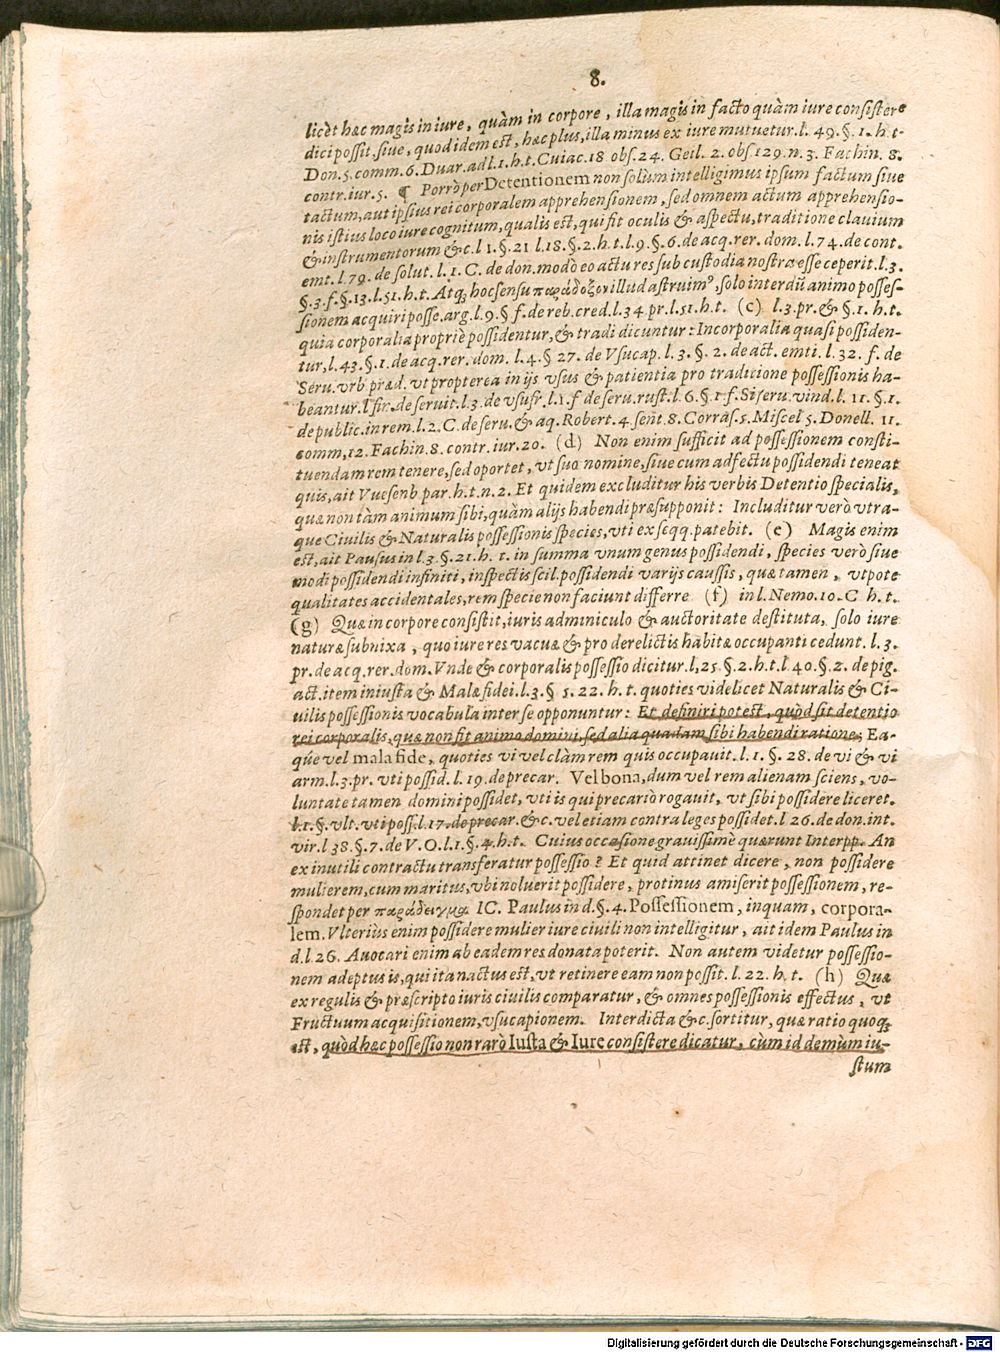 8.
licèt hæc magis in iure, quàm in corpore, illa magis in facto quàm iure consistere
dici possit. siue, quod idem est, hæc plus, illa minus ex iure mutuetur. l. 49. §. 1. h. t.
Don. 5. comm. 6. Duar. ad l. 1. h. t. Cuiac. 18 obs. 24. Geil. 2. obs 129. n. 3. Fachin. 8.
contr. iur. 5. ¶ Porrò per Detentionem non solùm intelligimus ipsum factum siue
tactum, aut ipsius rei corporalem apprehensionem, sed omnem actum apprehensio-
nis istius loco iure cognitum, qualis est, qui fit oculis & aspectu, traditione clauium
& instrumentorum &c. l 1. §. 21 l. 18. §. 2. h. t. l. 9. §. 6. de acq. rer. dom. l. 74. de cont.
emt. l. 79. de solut. l. 1. C. de don. modò eo actu res sub custodia nostra esse ceperit. l. 3.
§. 3. f. §. 13. l. 51. h. t. Atq; hoc sensu παράδοξον illud astruim⁹, solo interdū animo posses-
sionem acquiri posse. arg. l. 9. § f. de reb. cred. l. 34 pr. l. 51. h. t. (c) l. 3. pr. & §. 1. h. t.
quia corporalia propriè possidentur, & tradi dicuntur: Incorporalia quasi possiden-
tur, l. 43. §. 1. de acq. rer. dom. l. 4. § 27. de Vsucap. l. 3. §. 2. de act. emti. l. 32. f. de
Seru. vrb præd. vt propterea in ijs vsus & patientia pro traditione possessionis ha-
beantur. l fin. de seruit. l. 3. de vsufr. l. 1. f de seru. rust. l. 6. § 1 f. Si seru. vind. l. 11. §. 1.
de public. in rem. l. 2. C. de seru. & aq. Robert. 4. sent. 8. Corras. 5. Miscel 5. Donell. 11.
comm, 12. Fachin. 8. contr. iur. 20. (d) Non enim sufficit ad possessionem consti-
tuendam rem tenere, sed oportet, vt suo nomine, siue cum adfectu possidendi teneat
quis, ait Vuesenb. par. h. t. n. 2. Et quidem excluditur his verbis Detentio specialis,
quæ non tàm animum sibi, quàm alijs habendi præsupponit: Includitur verò vtra-
que Ciuilis & Naturalis possessionis species, vti ex seqq. patebit. (e) Magis enim
est, ait Paulus in l. 3. §. 21. h. t. in summa vnum genus possidendi, species verò siue
modi possidendi infiniti, inspectis scil. possidendi varijs caussis, quæ tamen, vtpote
qualitates accidentales, rem specie non faciunt differre (f) in l. Nemo. 10. C h. t.
(g) Quæ in corpore consistit, iuris adminiculo & auctoritate destituta, solo iure
naturæ subnixa, quo iure res vacuæ & pro derelictis habitæ occupanti cedunt. l. 3.
pr. de acq. rer. dom. Vnde & corporalis possessio dicitur. l, 25. §. 2. h. t. l 40. §. 2. de pig.
act. item iniusta & Malæ fidei. l. 3. § 5. 22. h. t. quoties videlicet Naturalis & Ci-
uilis possessionis vocabula inter se opponuntur: Et definiri potest, quòd sit detentio
rei corporalis, quæ non fit animo domini, sed alia quadam sibi habendi ratione; Ea-
q́ue vel mala fide, quoties vi vel clàm rem quis occupauit. l. 1. §. 28. de vi & vi
arm. l. 3. pr. vti possid. l. 19. de precar. Vel bona, dum vel rem alienam sciens, vo-
luntate tamen domini possidet, vti is qui precariò rogauit, vt sibi possidere liceret.
l. 1. §. vlt. vti poss. l 17. de precar. &c. vel etiam contra leges possidet. l 26. de don. int.
vir. l 38. §. 7. de V. O. l. 1. §. 4. h. t. Cuius occasione grauissimè quærunt Interpp. An
ex inutili contractu transferatur possessio? Et quid attinet dicere, non possidere
mulierem, cum maritus, vbi noluerit possidere, protinus amiserit possessionem, re-
spondet per παράδειγμα IC. Paulus in d. §. 4. Possessionem, inquam, corpora-
lem. Vlteriùs enim possidere mulier iure ciuili non intelligitur, ait idem Paulus in
d. l 26. Auocari enim ab eadem res donata poterit. Non autem videtur possessio-
nem adeptus is, qui ita nactus est, vt retinere eam non possit. l. 22. h. t. (h) Quæ
ex regulis & præscripto iuris ciuilis comparatur, & omnes possessionis effectus, vt
Fructuum acquisitionem, vsucapionem. Interdicta &c. sortitur, quæ ratio quoq;
est, quòd hæc possessio non rarò Iusta & Iure consistere dicatur, cùm id demùm iu-
stum
Digitalisierung gefördert durch die Deutsche Forschungsgemeinschaft - DFG